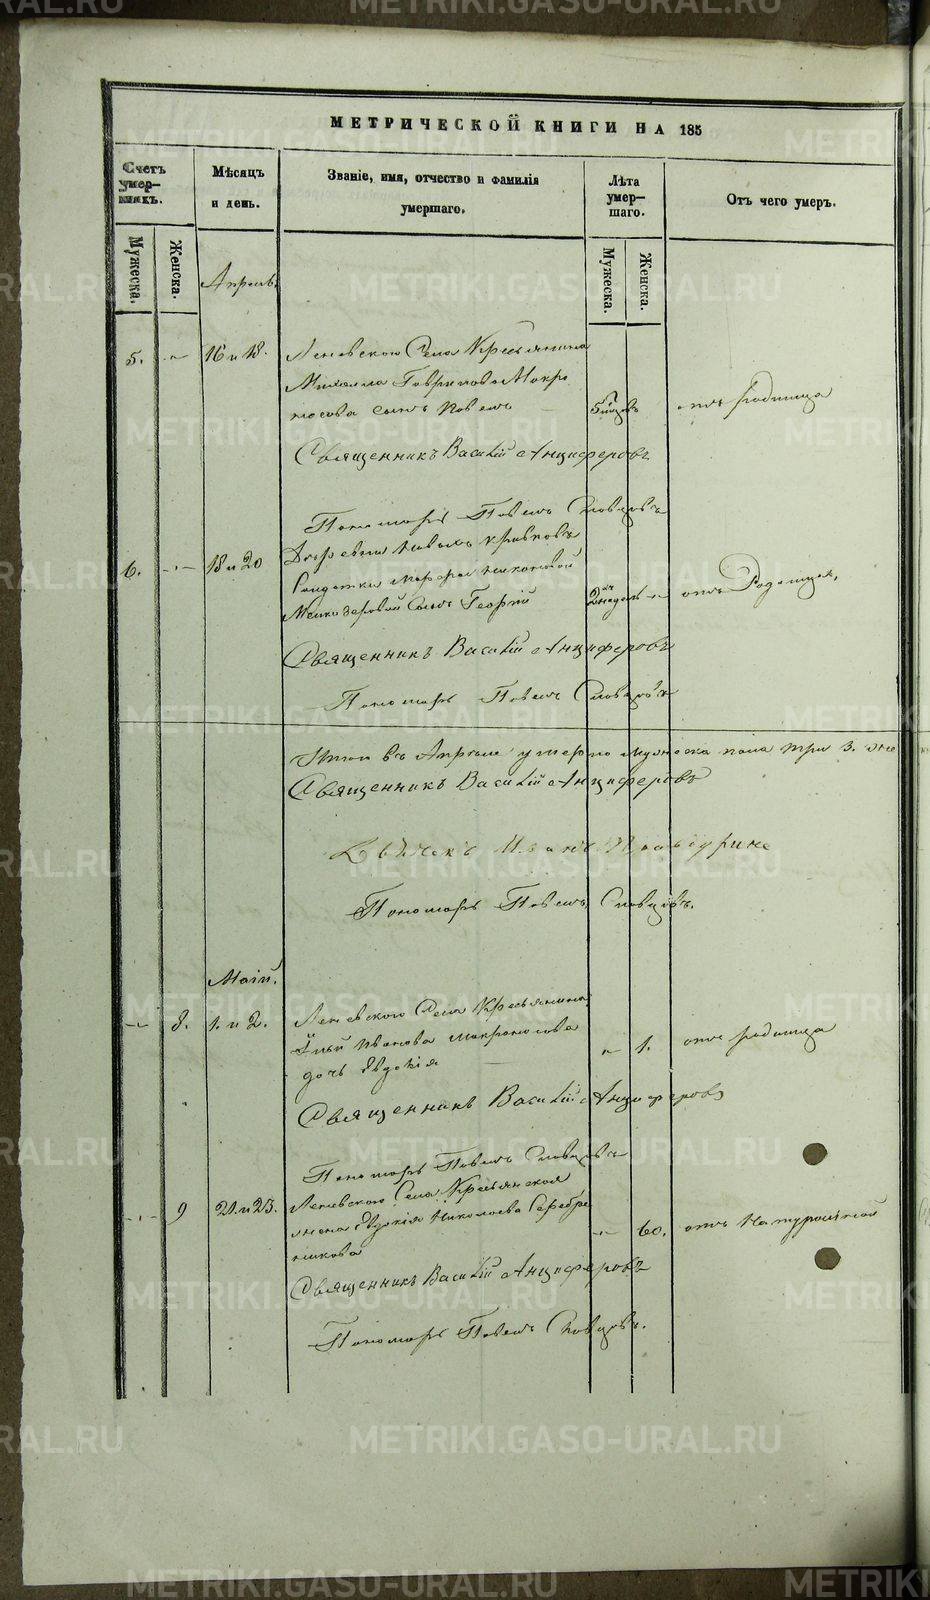 МЕТРИЧЕСКОЙ КНИГИ НА 185
Счетъ умер-шихъ.
Мѣсяцъ и день.
Званіе, имя, отчество и фамилія умершаго.
Лѣта умер-шаго.
Отъ чего умеръ.
Мужеска.
Женска.
Мужеска.
Женска.
Апрель.
5. 16 и 18. Леневскаго Села Крестьянина
Михаила Гаврилова Мокро
носова сынъ Павелъ 5 отъ родимца
Священникъ Василій Анциферовъ
Пономарь Павелъ Словцовъ
6. 18 и 20 Деревни
Солдатки Марфы
сынъ Георгій 2 недель отъ Родимца,
Священникъ Василій Анциферовъ
Пономарь Павелъ Словцовъ
Итого въ Апреле умерло мужеска пола три 3.
Священникъ Василій Анциферовъ
Иванъ
Пономарь Павелъ Словцовъ.
Маій.
8. 1. и 2. Леневскаго Села Крестьянина
Иванова Мокроносова
дочь Евдокія 1. отъ родимца
Священникъ Василій Анциферовъ
Пономарь Павелъ Словцовъ
9 21. и 23. Леневскаго Села Крестьянская
жена Евдокія Николаева Серебре
никова 60. отъ Натуральной
Священникъ Василій Анциферовъ
Пономарь Павелъ Словцовъ.
METRIKI.GASO-URAL.RU